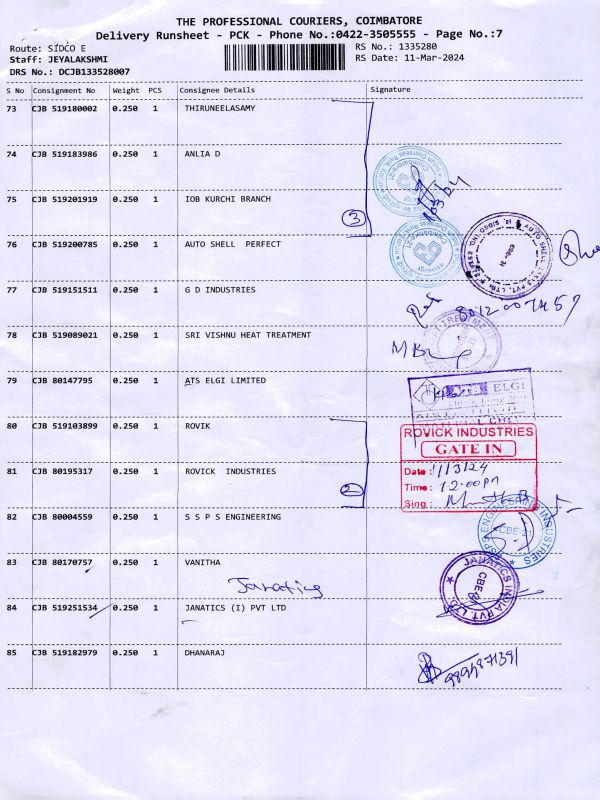 THE PROFESSIONAL COURIERS, COIMBATORE
Delivery Runsheet - PCK - Phone No.:0422-3505555 - Page No.:7
Route: SIDCO E
Staff: JEYALAKSHMI
DRS No.: DCJB133528007
RS No.: 1335280
RS Date: 11-Mar-2024
S No Consignment No Weight PCS Consignee Details Signature
73 CJB 519180002 0.250 1 THIRUNEELASAMY
74 CJB 519183986 0.250 1 ANLIA D
75 CJB 519201919 0.250 1 IOB KURCHI BRANCH
3
76 CJB 519200785 0.250 1 AUTO SHELL PERFECT
77 CJB 519151511 0.250 1 G D INDUSTRIES
78 CJB 519089021 0.250 1 SRI VISHNU HEAT TREATMENT
79 CJB 80147795 0.250 1 ATS ELGI LIMITED
ELGI
80 CJB 519103899 0.250 1 ROVIK
ROVICK INDUSTRIES
GATE IN
Date: 11/3/24
Time: 12:00pm
Sing:
81 CJB 80195317 0.250 1 ROVICK INDUSTRIES
2
82 CJB 80004559 0.250 1 S S P S ENGINEERING
SSPS ENGINEERING INDUSTRIES
CBE-21
83 CJB 80170757 0.250 1 VANITHA
Janatics
JANATICS INDIA PVT. LTD.
84 CJB 519251534 0.250 1 JANATICS (I) PVT LTD
85 CJB 519182979 0.250 1 DHANARAJ